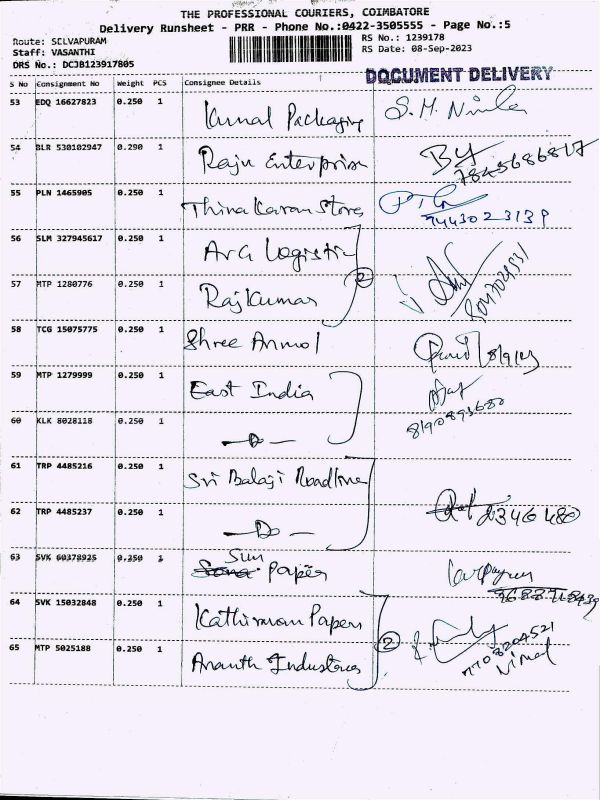 THE PROFESSIONAL COURIERS, COIMBATORE
Delivery Runsheet - PRR - Phone No.:0422-3505555 - Page No.:5
Route: SELVAPURAM
Staff: VASANTHI
DRS No.: DCJB123917805
RS No.: 1239178
RS Date: 08-Sep-2023
DOCUMENT DELIVERY
S No Consignment No Weight PCS Consignee Details
53 EDQ 16627823 0.250 1 Kumal Packaging S.M. Nirmla
54 BLR 530102947 0.290 1 Raju Enterprise
55 PLN 1465905 0.250 1 Thinakaran Stores
56 SLM 327945617 0.250 1 ARG Logistic
57 MTP 1280776 0.250 1 Rajkumar
2
58 TCG 15075775 0.250 1 Shree Anmol
59 MTP 1279999 0.250 1 East India
8190893680
60 KLK 8028118 0.250 1 -D-
61 TRP 4485216 0.250 1 Sri Balaji Roadline
62 TRP 4485237 0.250 1 -D-
63 SVK 60378925 0.250 1 Sun Paper
64 SVK 15032848 0.250 1 Kathirvan Papers
2
7708204521
65 MTP 5025188 0.250 1 Ananth Industries Nirmal